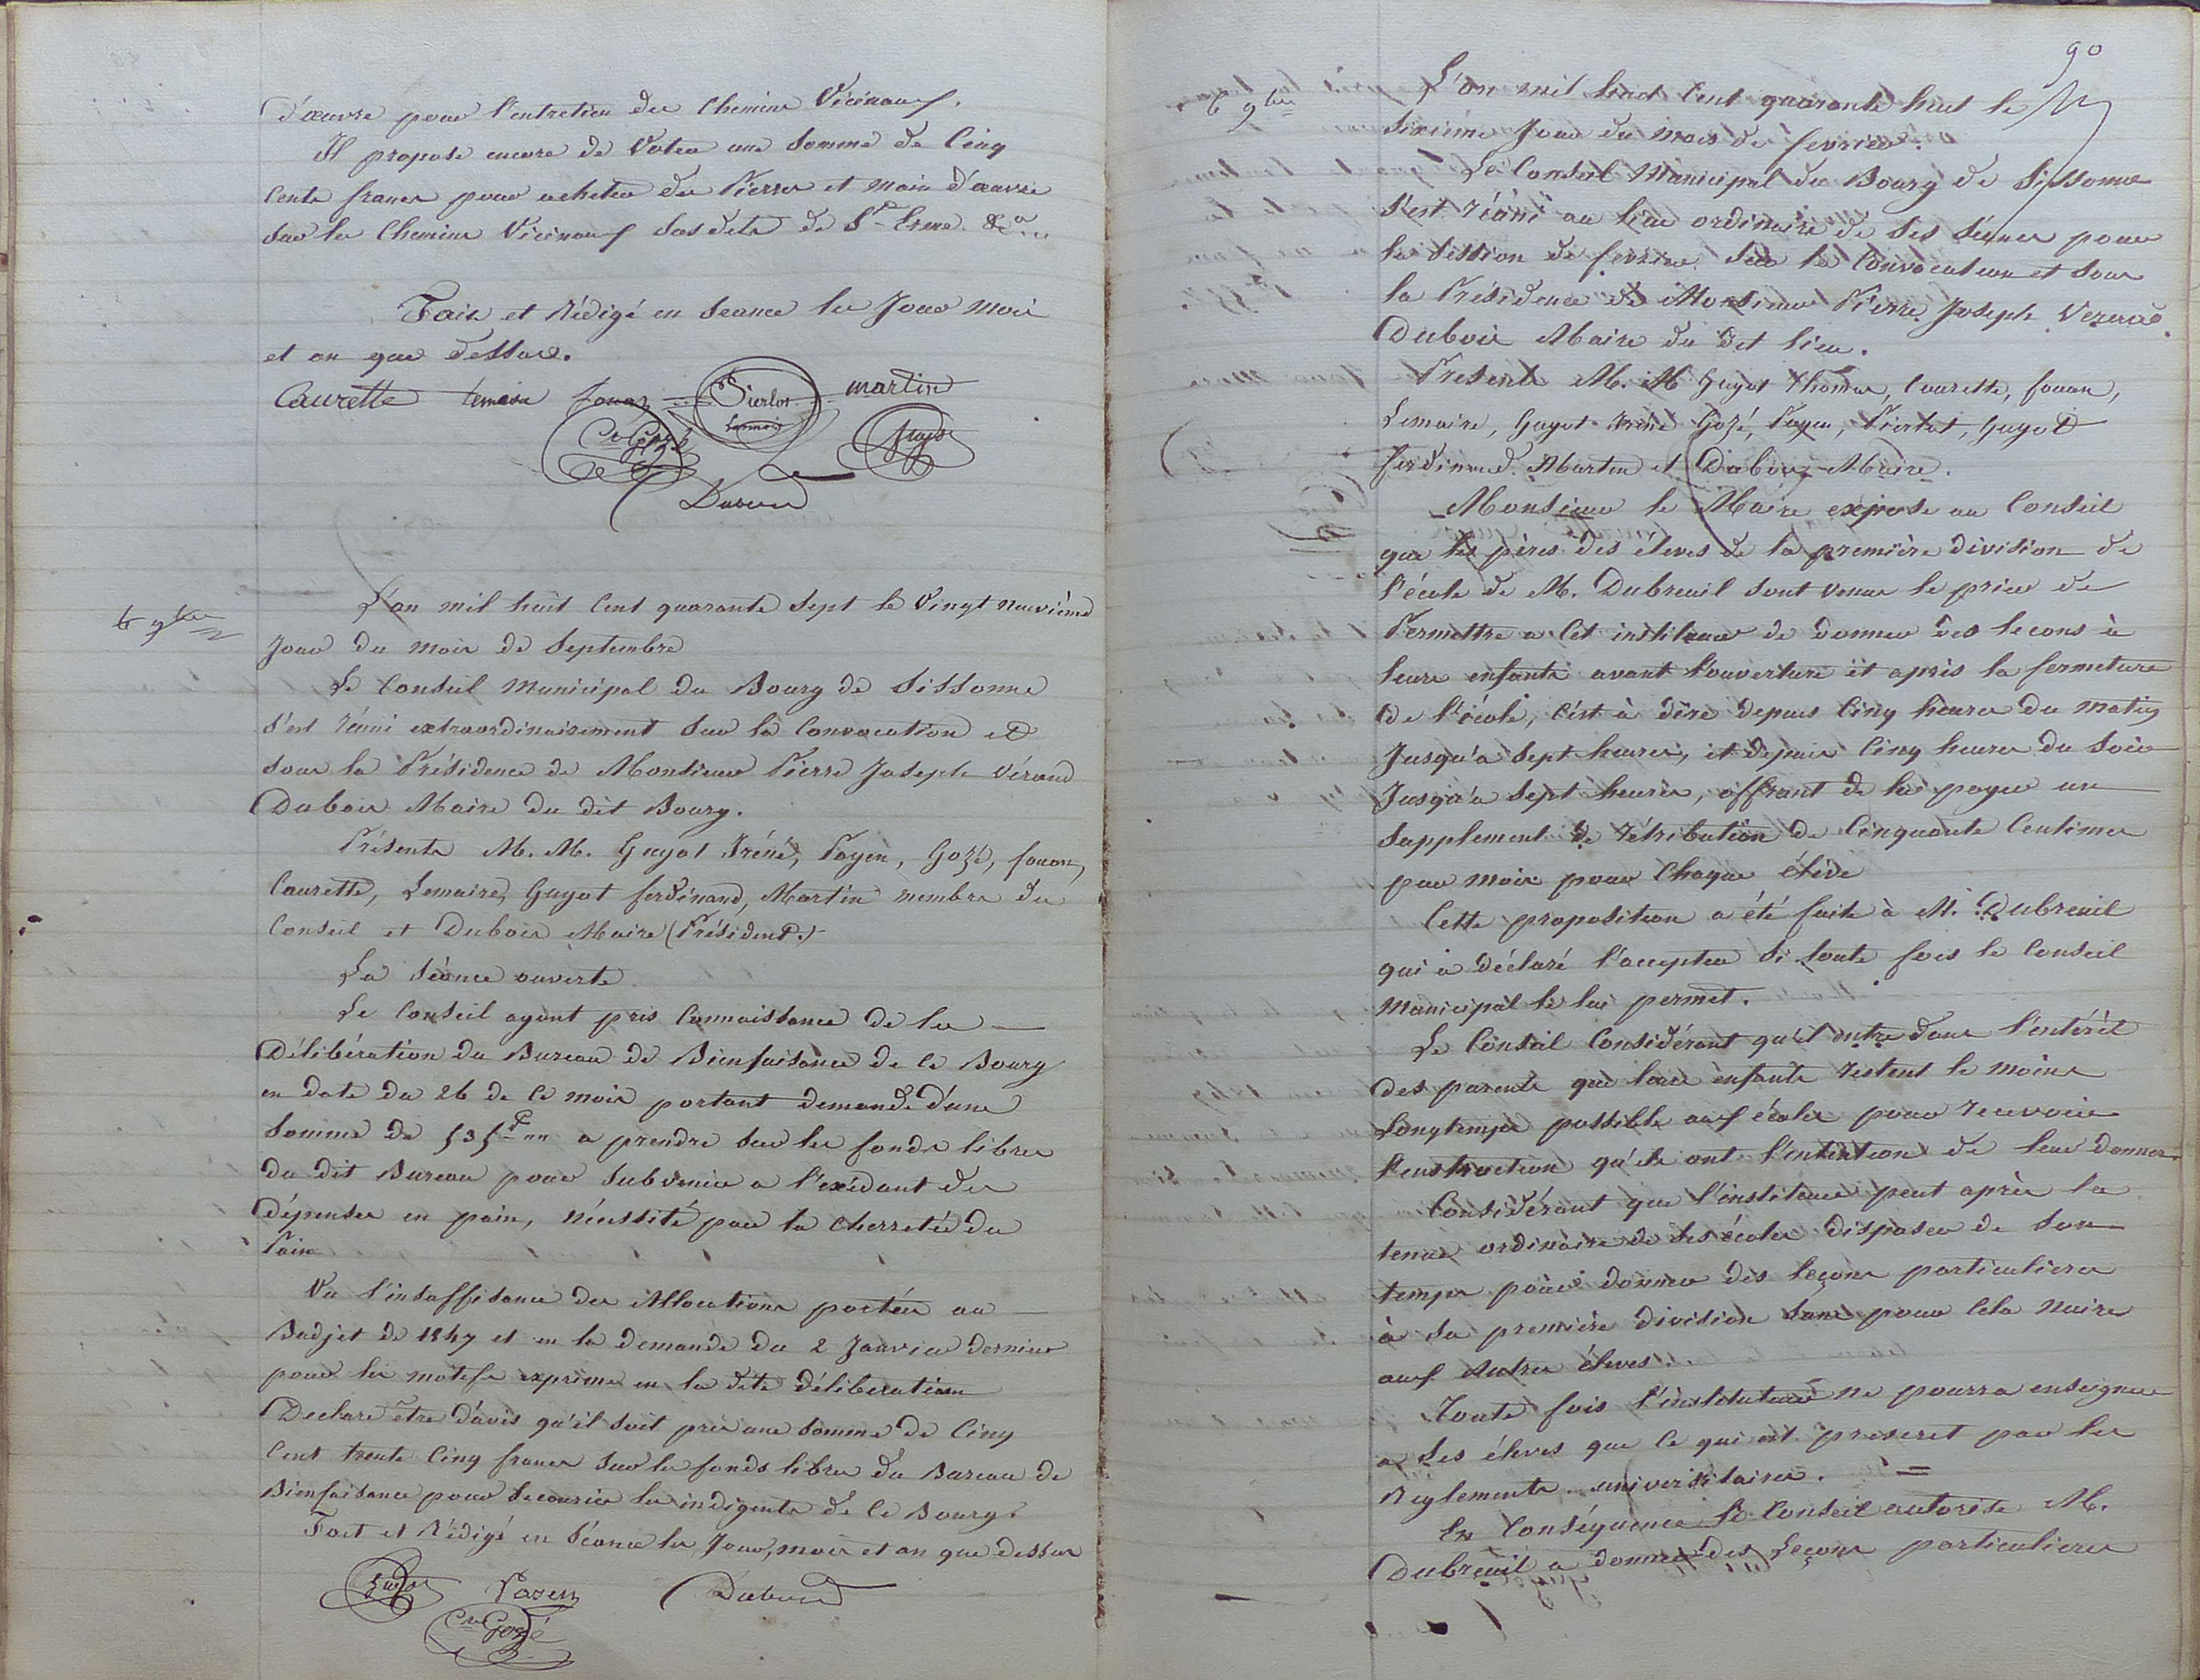 d'œuvre pour l'entretien des Chemins Vicinaux.
Il propose encore de Voter une Somme de Cinq
Cents francs pour acheter des Pierres et main d'œuvre
sur les Chemins Vicinaux susdits de St Erme &a
Fait et Rédigé en Séance les Jour Mois
et an que dessus.
Caurette Lemaire fouan Pierlot martin
C G Gozé Guyot
Dubois
6 9bre
L'an mil huit Cent quarante Sept le Vingt neuvième
Jour du mois de Septembre
Le Conseil Municipal du Bourg de Sissonne
s'est réuni extraordinairement sur la Convocation et
sous la Présidence de Monsieur Pierre Joseph Vérand
Dubois Maire du dit Bourg.
Présents M. M. Guyot Iréné, Payen, Gozé, fouan,
Caurette, Lemaire, Guyot ferdinand, Martin membre du
Conseil et Dubois Maire (Président.)
La Séance ouverte
Le Conseil ayant pris Connaissance de la
Délibération du Bureau de Bienfaisance de Ce Bourg
en date du 26 de Ce mois portant demande d'une
Somme de 535 f "" a prendre sur les fonds libres
du dit Bureau pour Subvenir a l'exédant des
Dépenses en pain, nécessité par la Cherretée du
Pain
Vu l'insuffisance des Allocations portées au
Budjet de 1847 et en la demande du 2 Janvier dernier
pour les motifs exprimé en la dite délibération
Declare être d'avis qu'il soit pris une Somme de Cinq
Cent trente Cinq francs sur les fonds libres du Bureau de
Bienfaisance pour Secourir les indigents de Ce Bourg.
Fait et Rédigé en Séance les Jour, mois et an que dessus
Payen Dubois
C G Gozé
90
6 9bre
L'an mil huit Cent quarante huit le
Sixième Jour du mois de fevrier
Le Conseil Municipal du Bourg de Sissonne
s'est réuni au lieu ordinaire de Ses Séances pour
la Session de fevrier sur la Convocation et sous
la Présidence de Monsieur Pierre Joseph
Dubois Maire du dit lieu.
Présents M. M Guyot Thomas, Caurette, fouan,
Lemaire, Guyot Iréné Gozé, Payen, Pierlot, Guyot
ferdinand Martin et Dubois Maire.
Monsieur le Maire expose au Conseil
que les pères des élèves de la première division de
l'école de M. Dubreuil sont venus le prier de
Permettre a Cet instituteur de donner des lecons à
leurs enfants avant l'ouverture et après la fermeture
de l'école, C'est à dire depuis Cinq heures du matin
Jusqu'a Sept heures, et depuis Cinq heures du Soir
Jusqu'a Sept heures, offrant de lui payer un
Supplement de rétribution de Cinquante Centimes
par mois pour Chaque élève
Cette proposition a été faite à M. Dubreuil
qui a déclaré l'accepter Si toute fois le Conseil
Municipal le lui permet.
Le Conseil Considérant qu'il entre dans l'intérêt
des parents que leurs enfants restent le moins
Longtemps possible aux écoles pour recevoir
l'instruction qu'ils ont l'intention de leur donner
Considérant que l'instituteur peut après la
tenue ordinaire de Ses écoles disposer de Son
temps pour donner des leçons particulieres
à Sa première division Sans pour Cela Nuire
aux Autres élèves.
Toute fois l'instituteur ne pourra enseigner
a Ses élèves que Ce qui est prescrit par les
Reglements universitaires. =
En Conséquence le Conseil autorise M.
Dubreuil a donner des Leçons particulieres